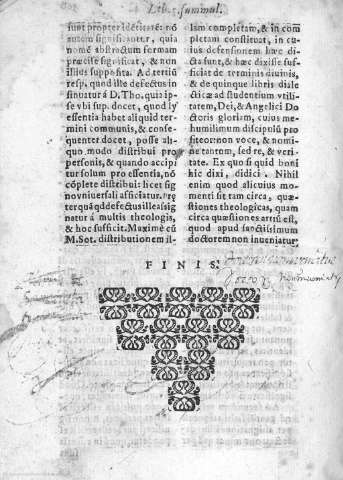 Liber summul.
sunt propter idẽtitatẽ: nõ
autem significantur, quia
nomẽ abstractum formam
præcise significat, & non
illius supposita. Ad tertiũ
resp. quod ille defectus in
sinuatur à D. Tho. quia ip-
se vbi sup. docet, quod ly
essentia habet aliquid ter-
mini communis, & conse-
quenter docet, posse ali-
quo modo distribui pro
personis, & quando accipi
tur solum pro essentia, nõ
cõplete distribui: licet sig
no vniuersali afficiatur.
ter quà qd defectus ille assig
natur à multis theologis,
& hoc sufficit. Maxime cũ
M. Sot. distributionem il-
lam completam, & in com
pletam constituat, in cu-
ius defensionem hæc di-
cta sunt, & hæc dixisse suf-
ficiat de terminis diuinis,
& de quinque libris diale
cticæ ad studentium vtili-
tatem, Dei, & Angelici Do
ctoris gloriam, cuius me
humilimum discipulũ pro
fiteor non voce, & nomi-
ne tantum, sed re, & veri-
tate. Ex quo si quid boni
hic dixi, didici. Nihil
enim quod alicuius mo-
menti sit tam circa, quæs-
tiones theologicas, quam
circa quæstiones artiũ est,
quod apud sanctissimum
doctorem non inueniatur.
FINIS.